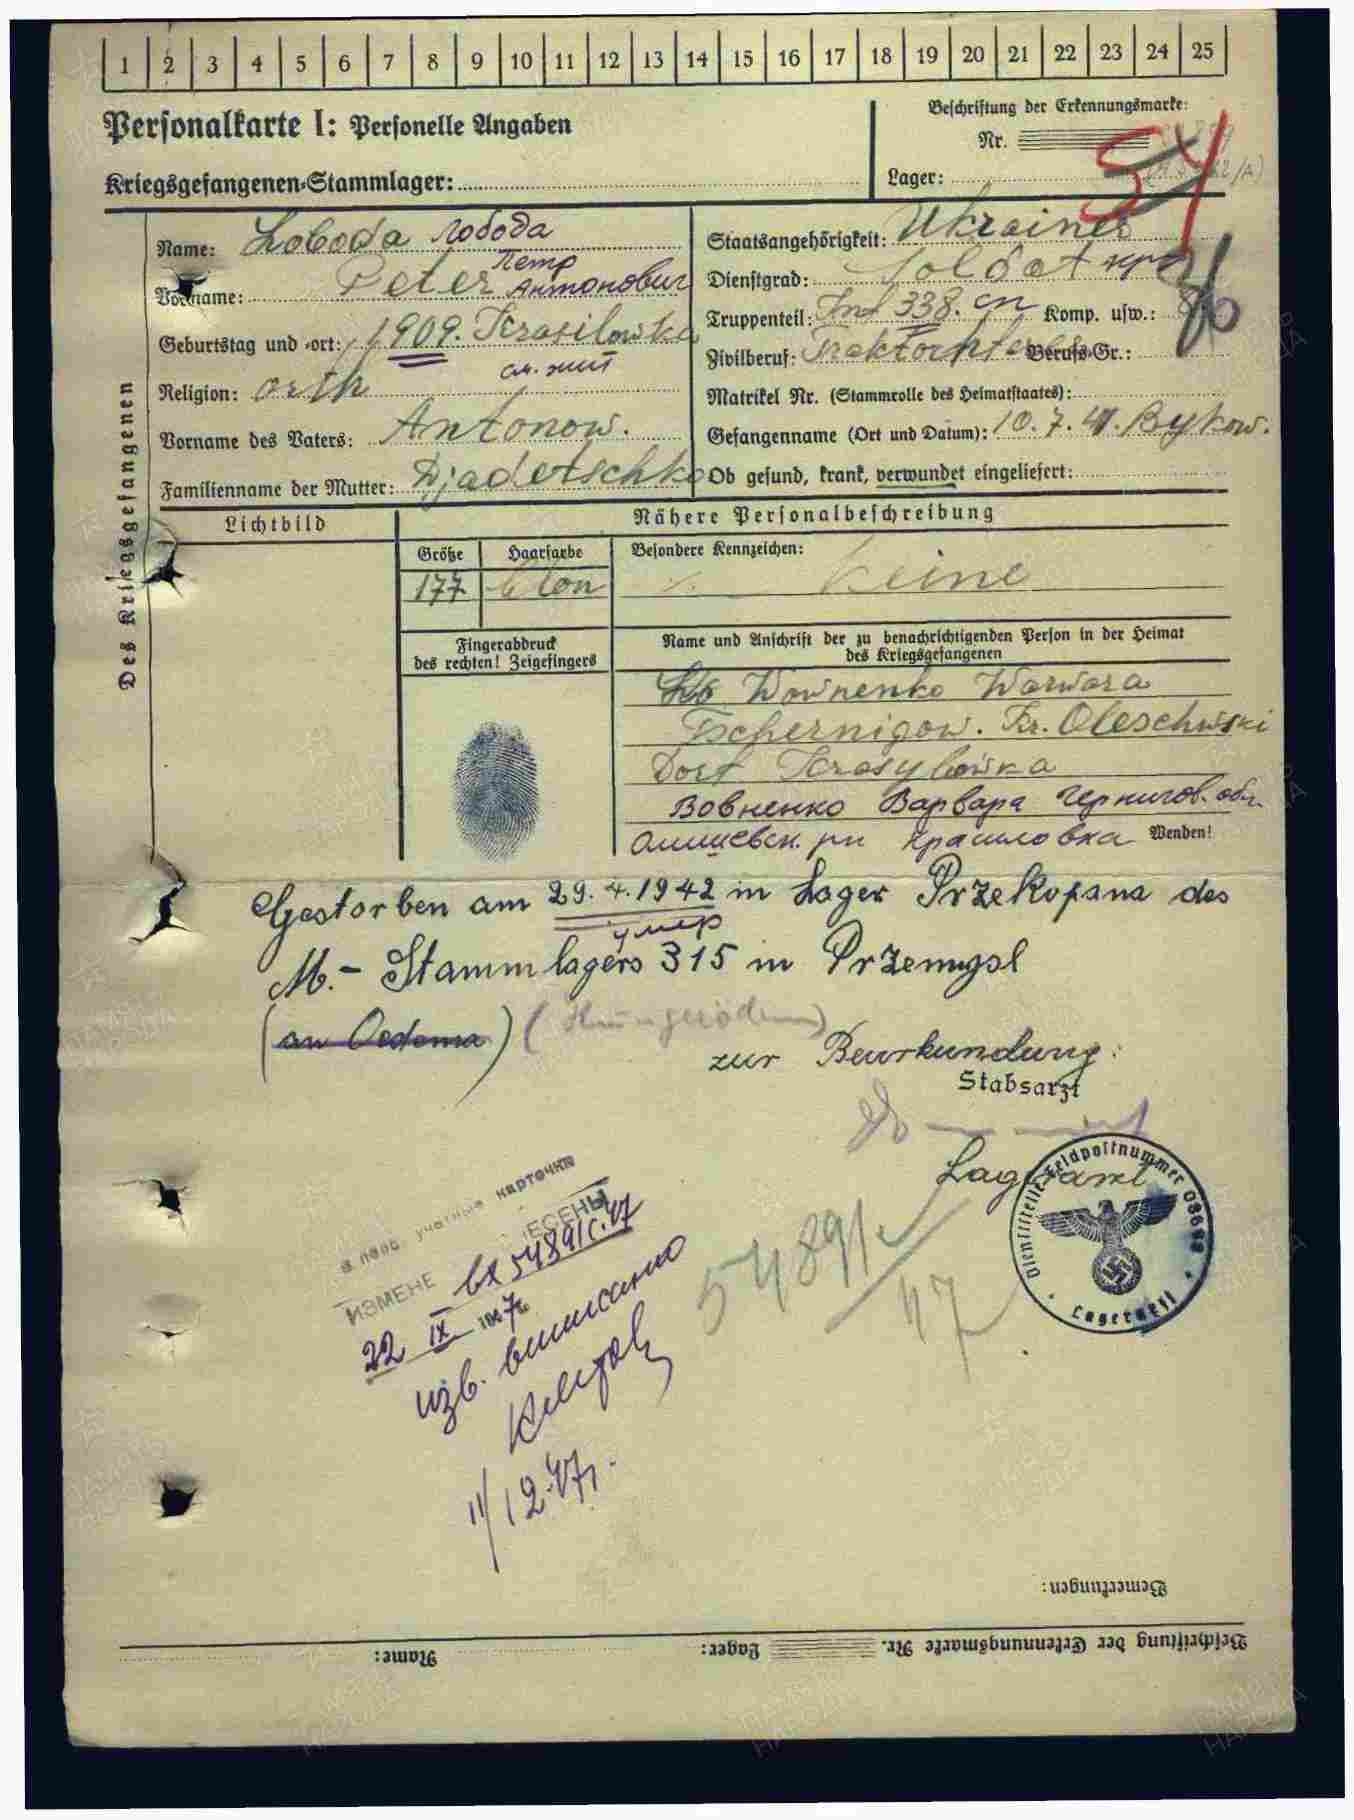 1 2 3 4 5 6 7 8 9 10 11 12 13 14 15 16 17 18 19 20 21 22 23 24 25
Personalkarte I: Personelle Angaben
Kriegsgefangenen-Stammlager:
Beschriftung der Erkennungsmarke:
Nr.
Lager:
54
Des Kriegsgefangenen
Name: Loboda Лобода
Vorname: Peter Петр Антонович
Geburtstag und -ort: 1909. Krasilowka
Religion: orth
Vorname des Vaters: Antonow.
Familienname der Mutter: Djadetschko
Staatsangehörigkeit: Ukrainer
Dienstgrad: Soldat кр
Truppenteil: Inf 338. сп Komp. usw.:
Zivilberuf: Berufs-Gr.:
Matrikel Nr. (Stammrolle des Heimatstaates):
Gefangenname (Ort und Datum): 10.7.41. Bykow.
Ob gesund, krank, verwundet eingeliefert:
Lichtbild
Nähere Personalbeschreibung
Größe Haarfarbe Besondere Kennzeichen:
177 blon keine
Fingerabdruck
des rechten! Zeigefingers
Name und Anschrift der zu benachrichtigenden Person in der Heimat
des Kriegsgefangenen
Wownenko Warwara
Tschernigow. Kr. Oleschwski
Dorf Krasylowka
Вовненко Варвара Чернигов. обл.
Олишевск. рн Крашловка Wenden!
Gestorben am 29.4.1942 in Lager Przekopana des
умер
M.- Stammlagers 315 in Przemysl
(an Oedema) (Hungerödem)
zur Beurkundung:
Stabsarzt
Lagerarzt
Dienststelle Feldpostnummer 08698
Lagerarzt
в перс. учетные карточки
ИЗМЕНЕ ЕСЕНЫ
вх 54891с.47
22 IX 1947г.
изв. выписано
11/12.47г.
54891с/47
Bemerkungen:
Beschriftung der Erkennungsmarke Nr. Lager: Name:
ПАМЯТЬ НАРОДА